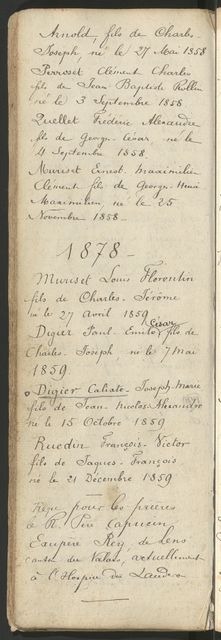 Arnold, fils de Charles-
Joseph, né le 27 Mai 1858
Perroset Clément Charles
fils de Jean Baptiste Rollin
né le 3 Septembre 1858
Quellet Fréderic Alexandre
fils de Georges-César né le
4 Septembre 1858.
Muriset Ernest Maximilien
Clement fils de Georges-Henri
Maximilien, né le 25
Novembre 1858.
1878-
Muriset Louis Florentin
fils de Charles-Jérôme
né le 27 avril 1859
César
Digier Paul-Emile, fils de
Charles-Joseph, né le 7 mai
1859.
Digier Calixte-Joseph Marie
fils de Jean-Nicolas Alexandre
né le 15 Octobre 1859
Ruedin François-Victor
fils de Jaques-François
né le 21 Décembre 1859
Reçu pour les prières
le R. Père Capucin
Exupère Rey de Lens
canton du Valais, actuellement
à l'Hospice du Landeron